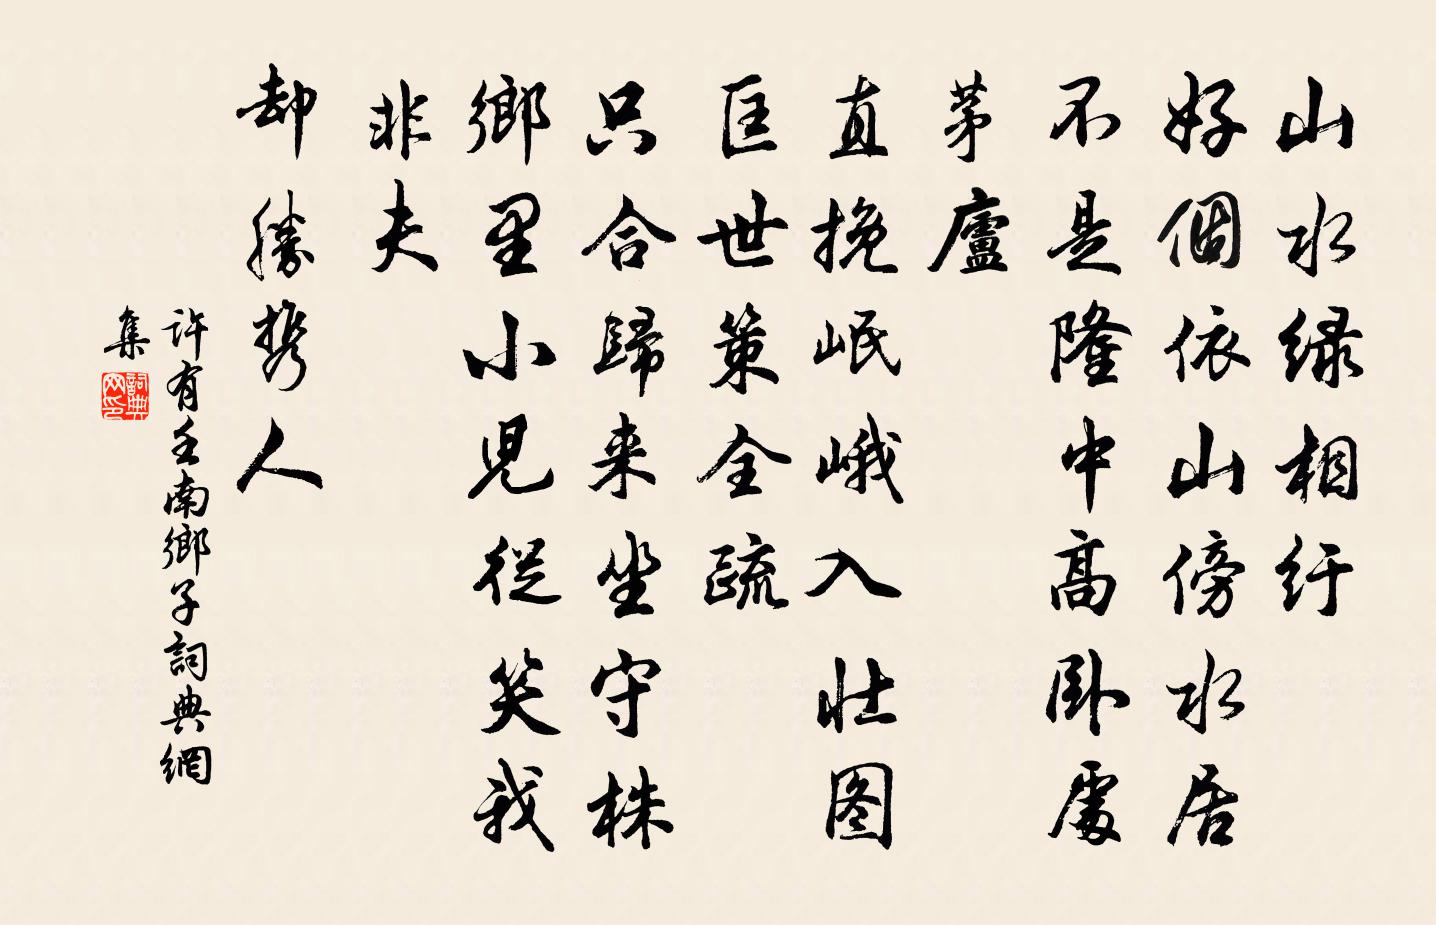 山水緑相紆
好個依山傍水居
不是隆中高卧處
茅廬
直挽岷峨入壮图
匡世策全疏
只合歸来坐守株
鄉里小児從笑我
非夫
却勝携人
許有壬南鄉子詞典網
集
詞典网印